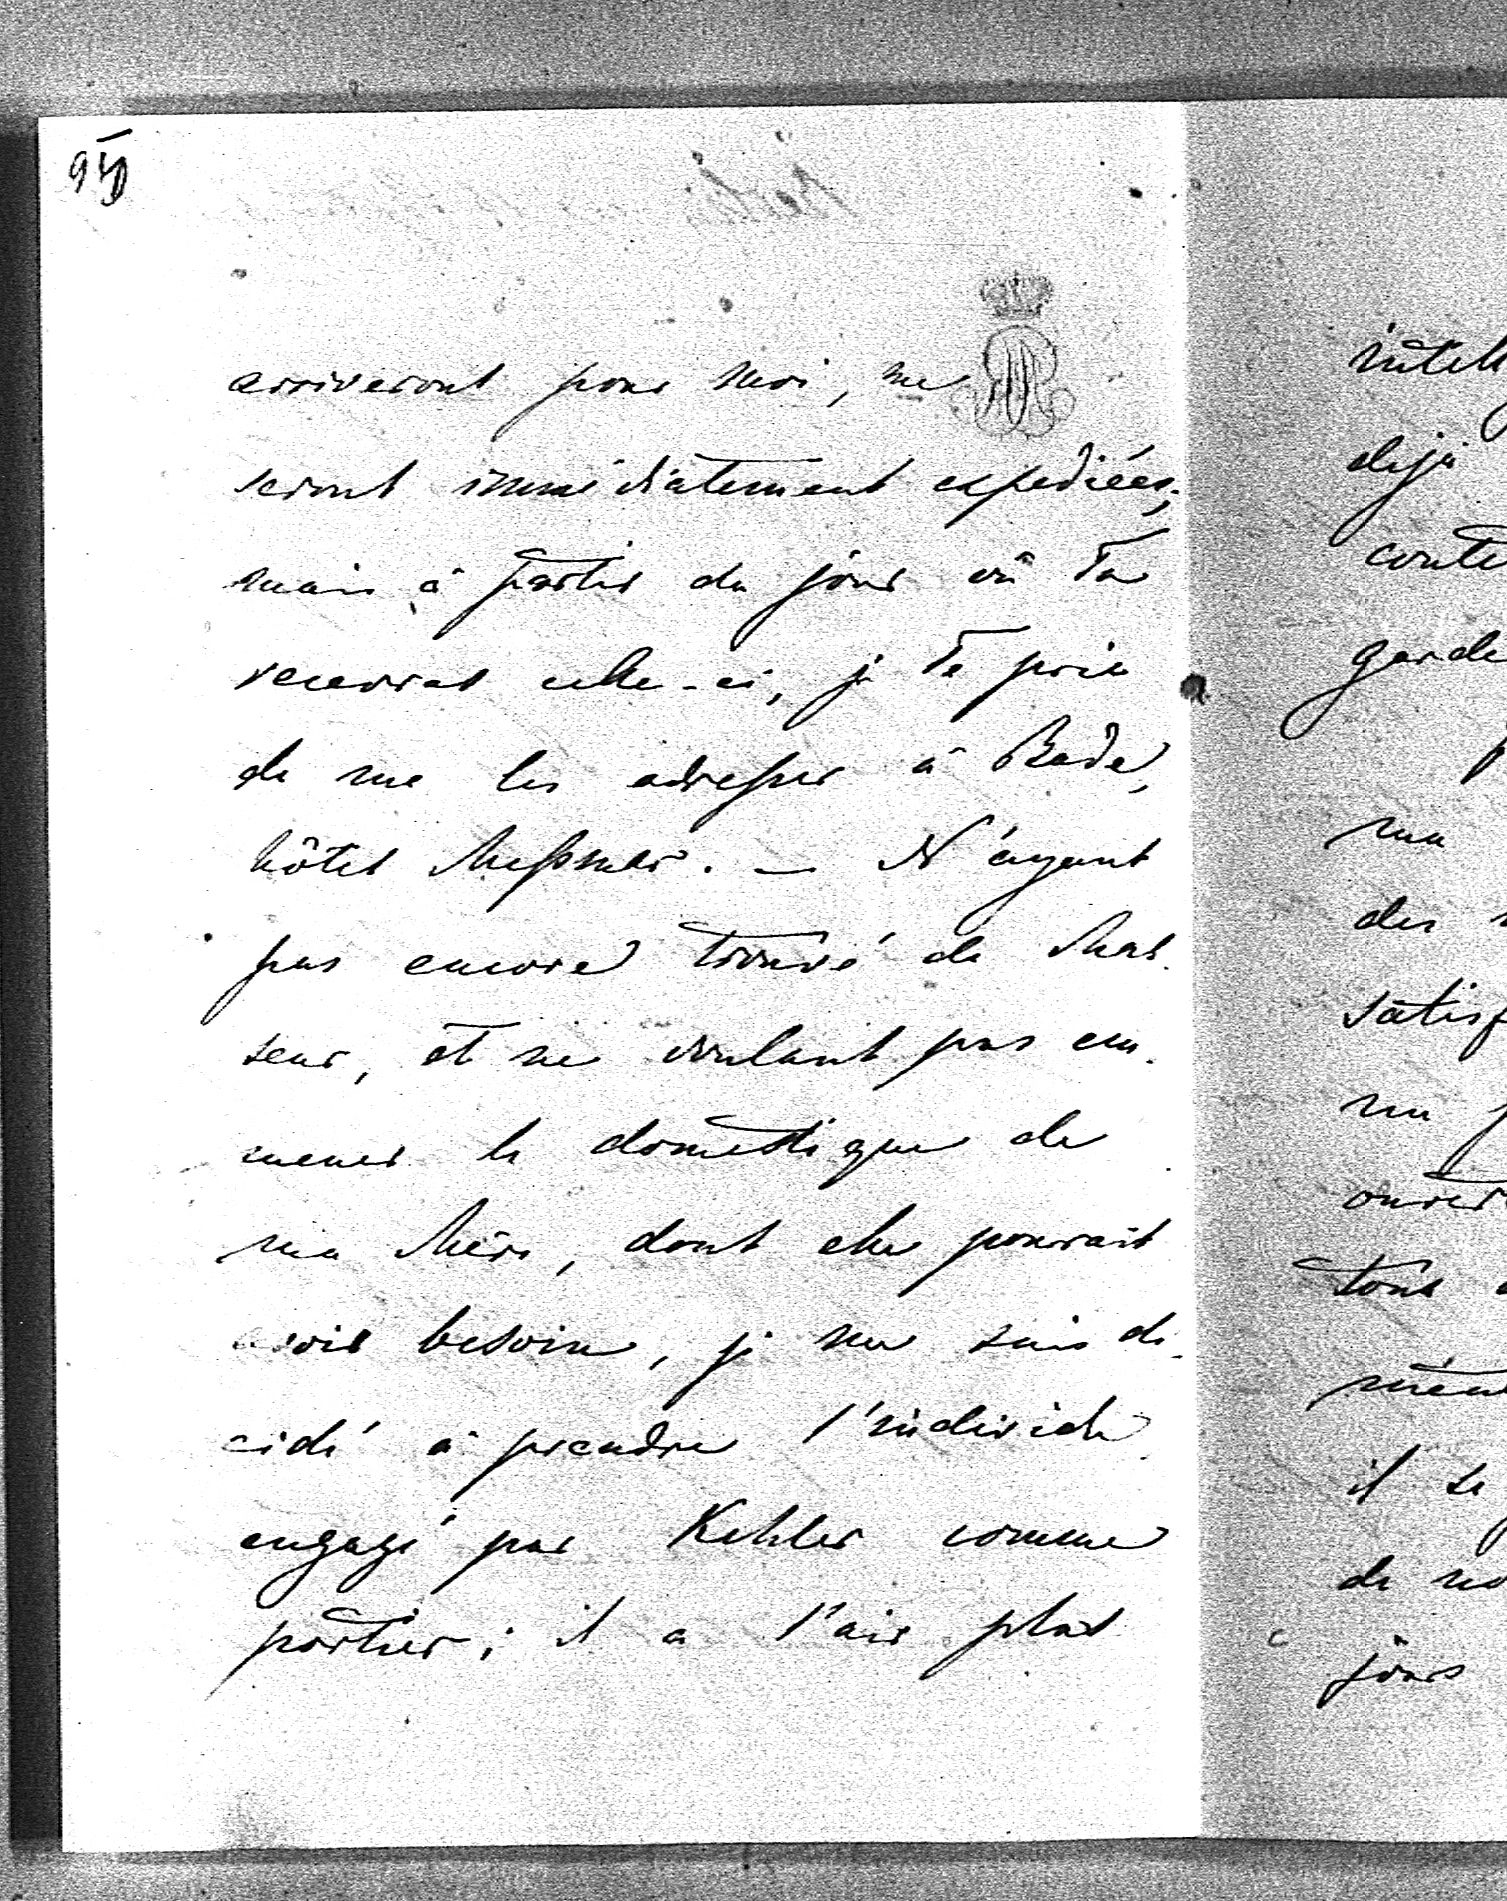 arriveront pour moi, me
seront immédiatement expediées;
mais à partir du jour où Tu
recevras celle-ci, je Te prie
de me les adresser à Bade,
hôtel Messmer. — N'ayant
pas encore trouvé de Chas-
seur, et ne voulant pas em-
mener le domestique de
ma Mère, dont elle pourrait
avoir besoin, je me suis dé-
cidé à prendre l'individu
engagé par Kehler comme
portier; il a l'air plus
intell
déjà
conte
garde
ma
des
satisf
un
ouvert
tout
même
il se
de no
jours